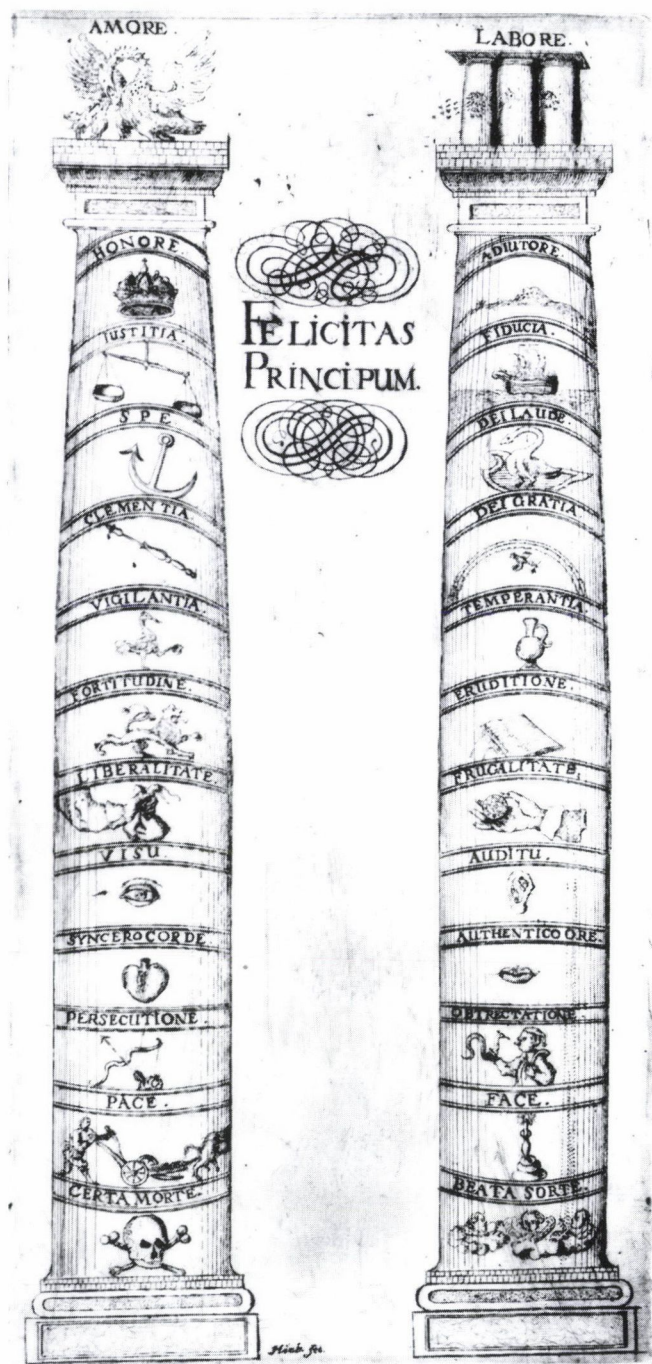 AMORE.
HONORE.
JUSTITIA.
SPE
CLEMENTIA
VIGILANTIA.
FORTITUDINE.
LIBERALITATE.
VISU.
SYNCERO CORDE
PERSECUTIONE.
PACE.
CERTA MORTE.
FELICITAS
PRINCIPUM.
LABORE.
ADIUTORE.
FIDUCIA.
DEI LAUDE.
DEI GRATIA
TEMPERANTIA.
ERUDITIONE.
FRUGALITATE,
AUDITU.
AUTHENTICO ORE.
OBTRECTATIONE
FACE.
BEATA SORTE.